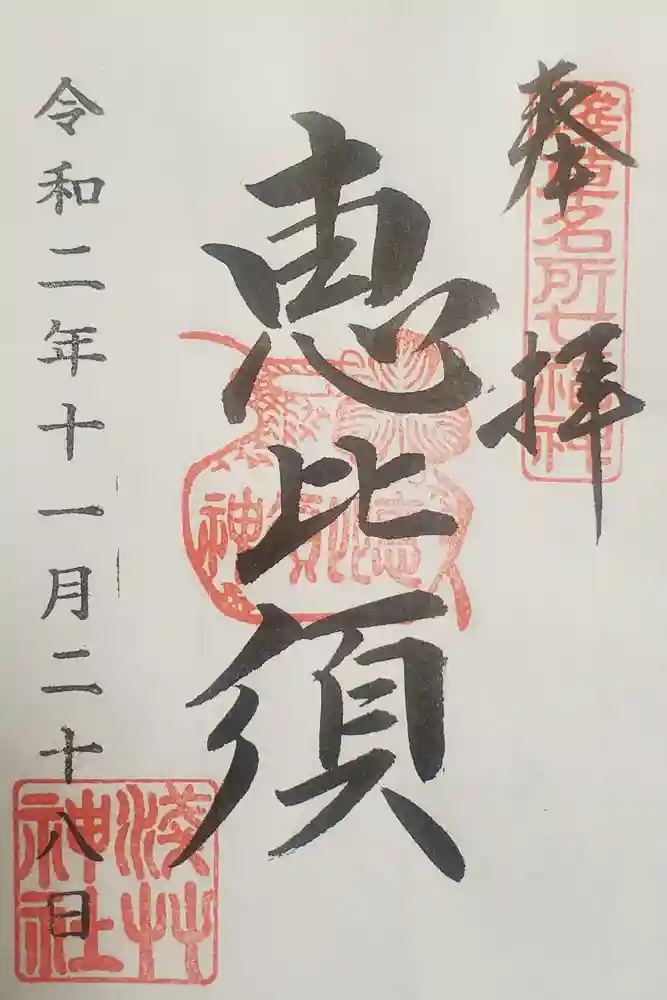 奉拝
浅草名所七福神
恵比須
恵比須神
令和二年十一月二十八日
浅草神社